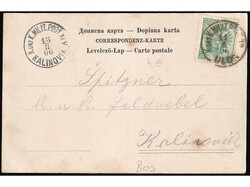 Дописна карта – Dopisna karta
CORRESPONDENZ-KARTE
Levelező-Lap – Carte postale
K. und K. MILIT. POST XIV
13
II
06
KALINOVIK
Spitzner
k. u. k. Feldwebel
Kalinovik
BOS